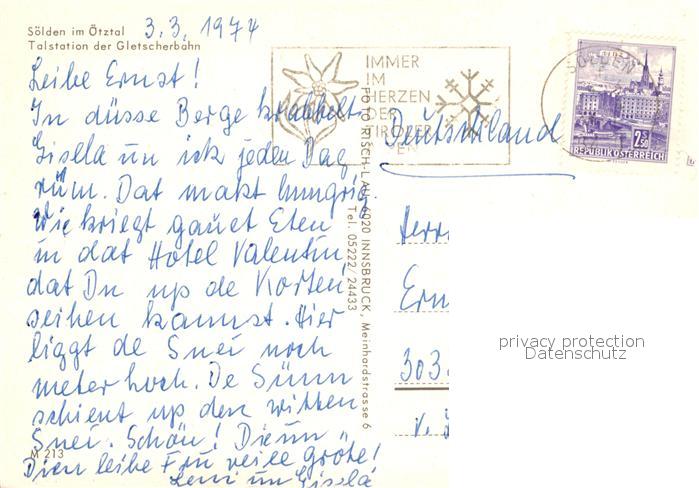 Sölden im Ötztal
Talstation der Gletscherbahn
3.3.1974
Leibe Ernst!
In düsse Berge krabbelt
Gisela un ick jeden Dag
rüm. Dat makt hungrig.
Wie kriegt gauet Eten
in dat Hotel Valentin,
dat Du up de Korten
seihen kannst. Hier
liggt de Snei noch
meter hoch. De Sünn
schient up den witten
Snei. Schön! Dieun
Dien leibe Fru veile gröte!
Leni un Gisela
M 213
FOTO RISCH-LAU, 6020 INNSBRUCK, Meinhardstrasse 6
Tel. 05222/24433
IMMER
IM
HERZEN
DER
TIROLER
SÖLDEN
2.50
REPUBLIK ÖSTERREICH
Deutschland
Herr
Ern
303
privacy protection
Datenschutz